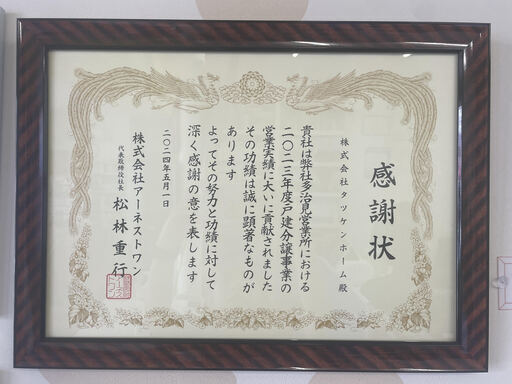 感謝状
株式会社タッケンホーム殿
貴社は弊社多治見営業所における
二〇二三年度戸建分譲事業の
営業実績に大いに貢献されました
その功績は誠に顕著なものが
あります
よってその努力と功績に対して
深く感謝の意を表します
二〇二四年五月一日
株式会社アーネストワン
代表取締役社長 松林重行